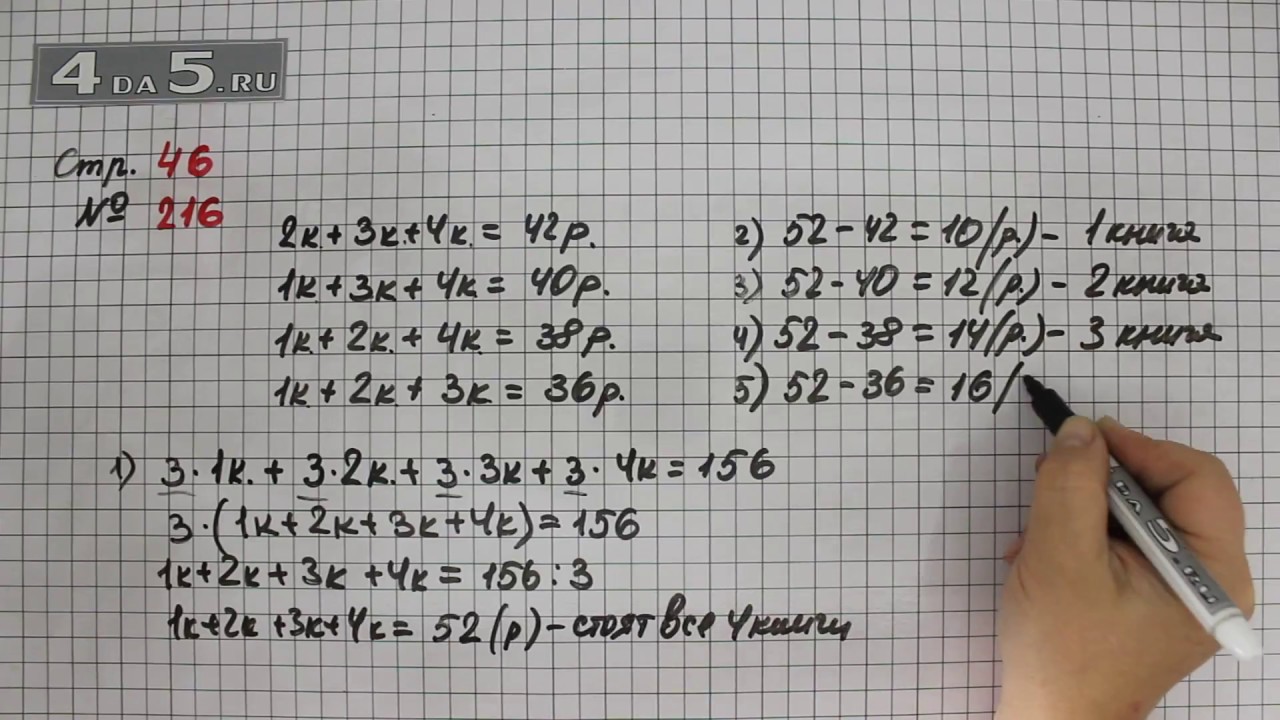 4 DA 5.RU
Стр. 46
№ 216
2к + 3к + 4к = 42р.
1к + 3к + 4к = 40р.
1к + 2к + 4к = 38р.
1к + 2к + 3к = 36р.
2) 52 - 42 = 10(р.) - 1 книга
3) 52 - 40 = 12(р.) - 2 книга
4) 52 - 38 = 14(р.) - 3 книга
5) 52 - 36 = 16(
1) 3 · 1к. + 3 · 2к. + 3 · 3к + 3 · 4к = 156
3 · (1к + 2к + 3к + 4к) = 156
1к + 2к + 3к + 4к = 156 : 3
1к + 2к + 3к + 4к = 52 (р) - стоят все 4 книги
DA 5.RU